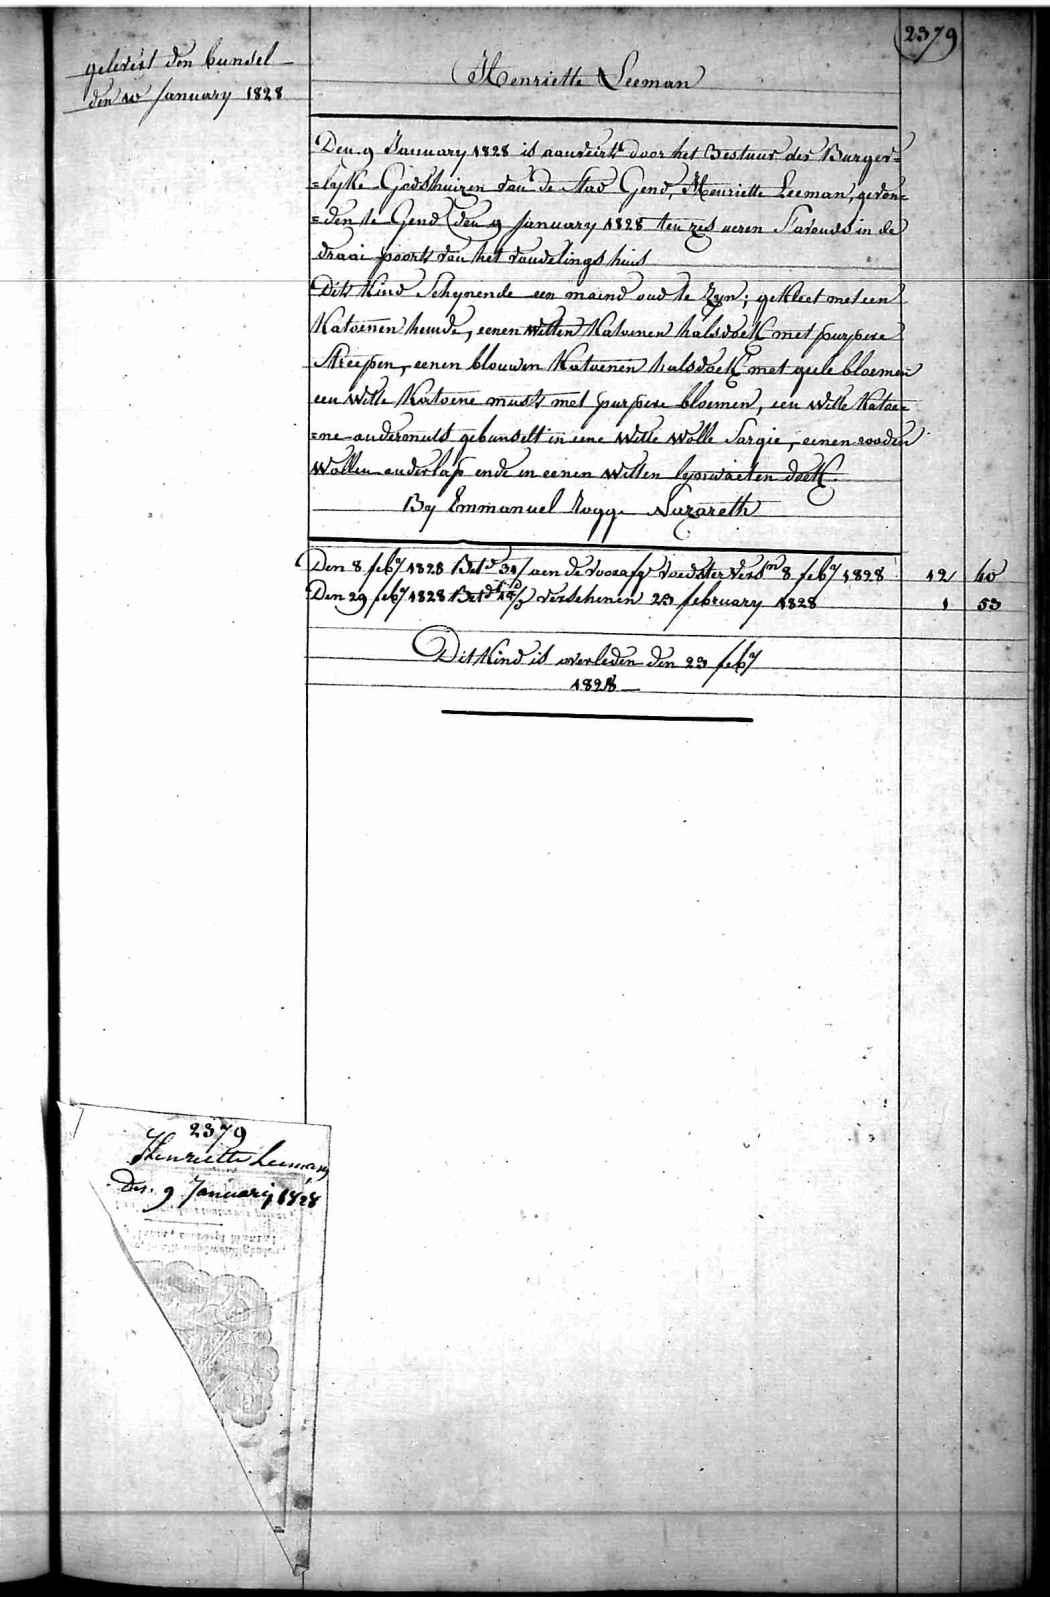 2379
gelevert den bunsel
den 10 January 1828
Henriette Leeman
Den 9 January 1828 is aanveirt door het Bestuur der Burger=
=lyke Godshuizen van de Stad Gend, Henriette Leeman, gevon=
=den te Gend den 9 January 1828 ten zes ueren S'avends in de
draai poort van het vondelings huis
Dit Kind Schynende een maend oud te Zyn; gekleet met een
Katoenen hemde, eenen witten Katoenen halsdoek met purpere
Streepen, eenen blouwen Katoenen halsdoek met geele bloemen
een witte Katoene muts met purpere bloemen, een witte Katoe=
=ne ondermuts gebunselt in eene witte wolle Sargie, eenen rooden
wollen onderlap ende in eenen witten lynwaeten doek.
By Emmanuel Rogge Nazareth
Den 8 feby 1828 Betd 31/ aen de voorafge voedster versn 8 feby 1828 12 40
Den 29 feby 1828 Betd verschenen 23 february 1828 1 53
Dit Kind is overleden den 23 feby
1828
2379
Henriette Leeman
Den 9 January 1828